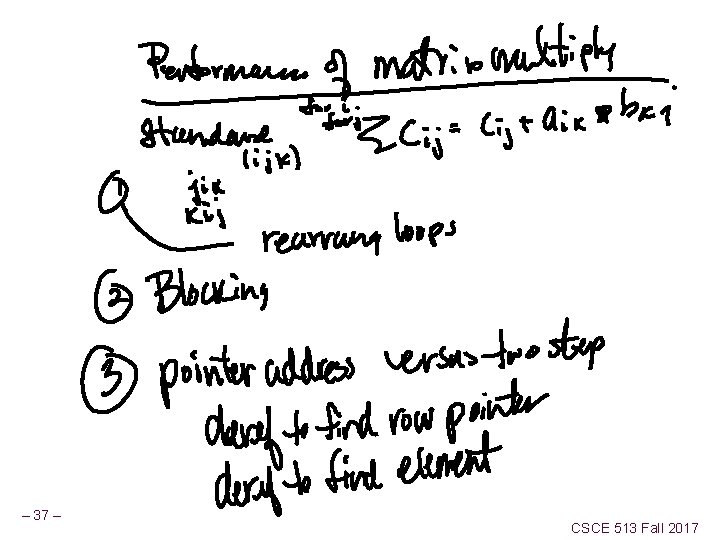 Performance of matrix multiply
for i
for j
Standard Σ Cij = Cij + aik * bkj
(ijk)
① jik
kij
rearrang loops
② Blocking
③ pointer address versus two step
deref to find row pointer
deref to find element
– 37 –
CSCE 513 Fall 2017